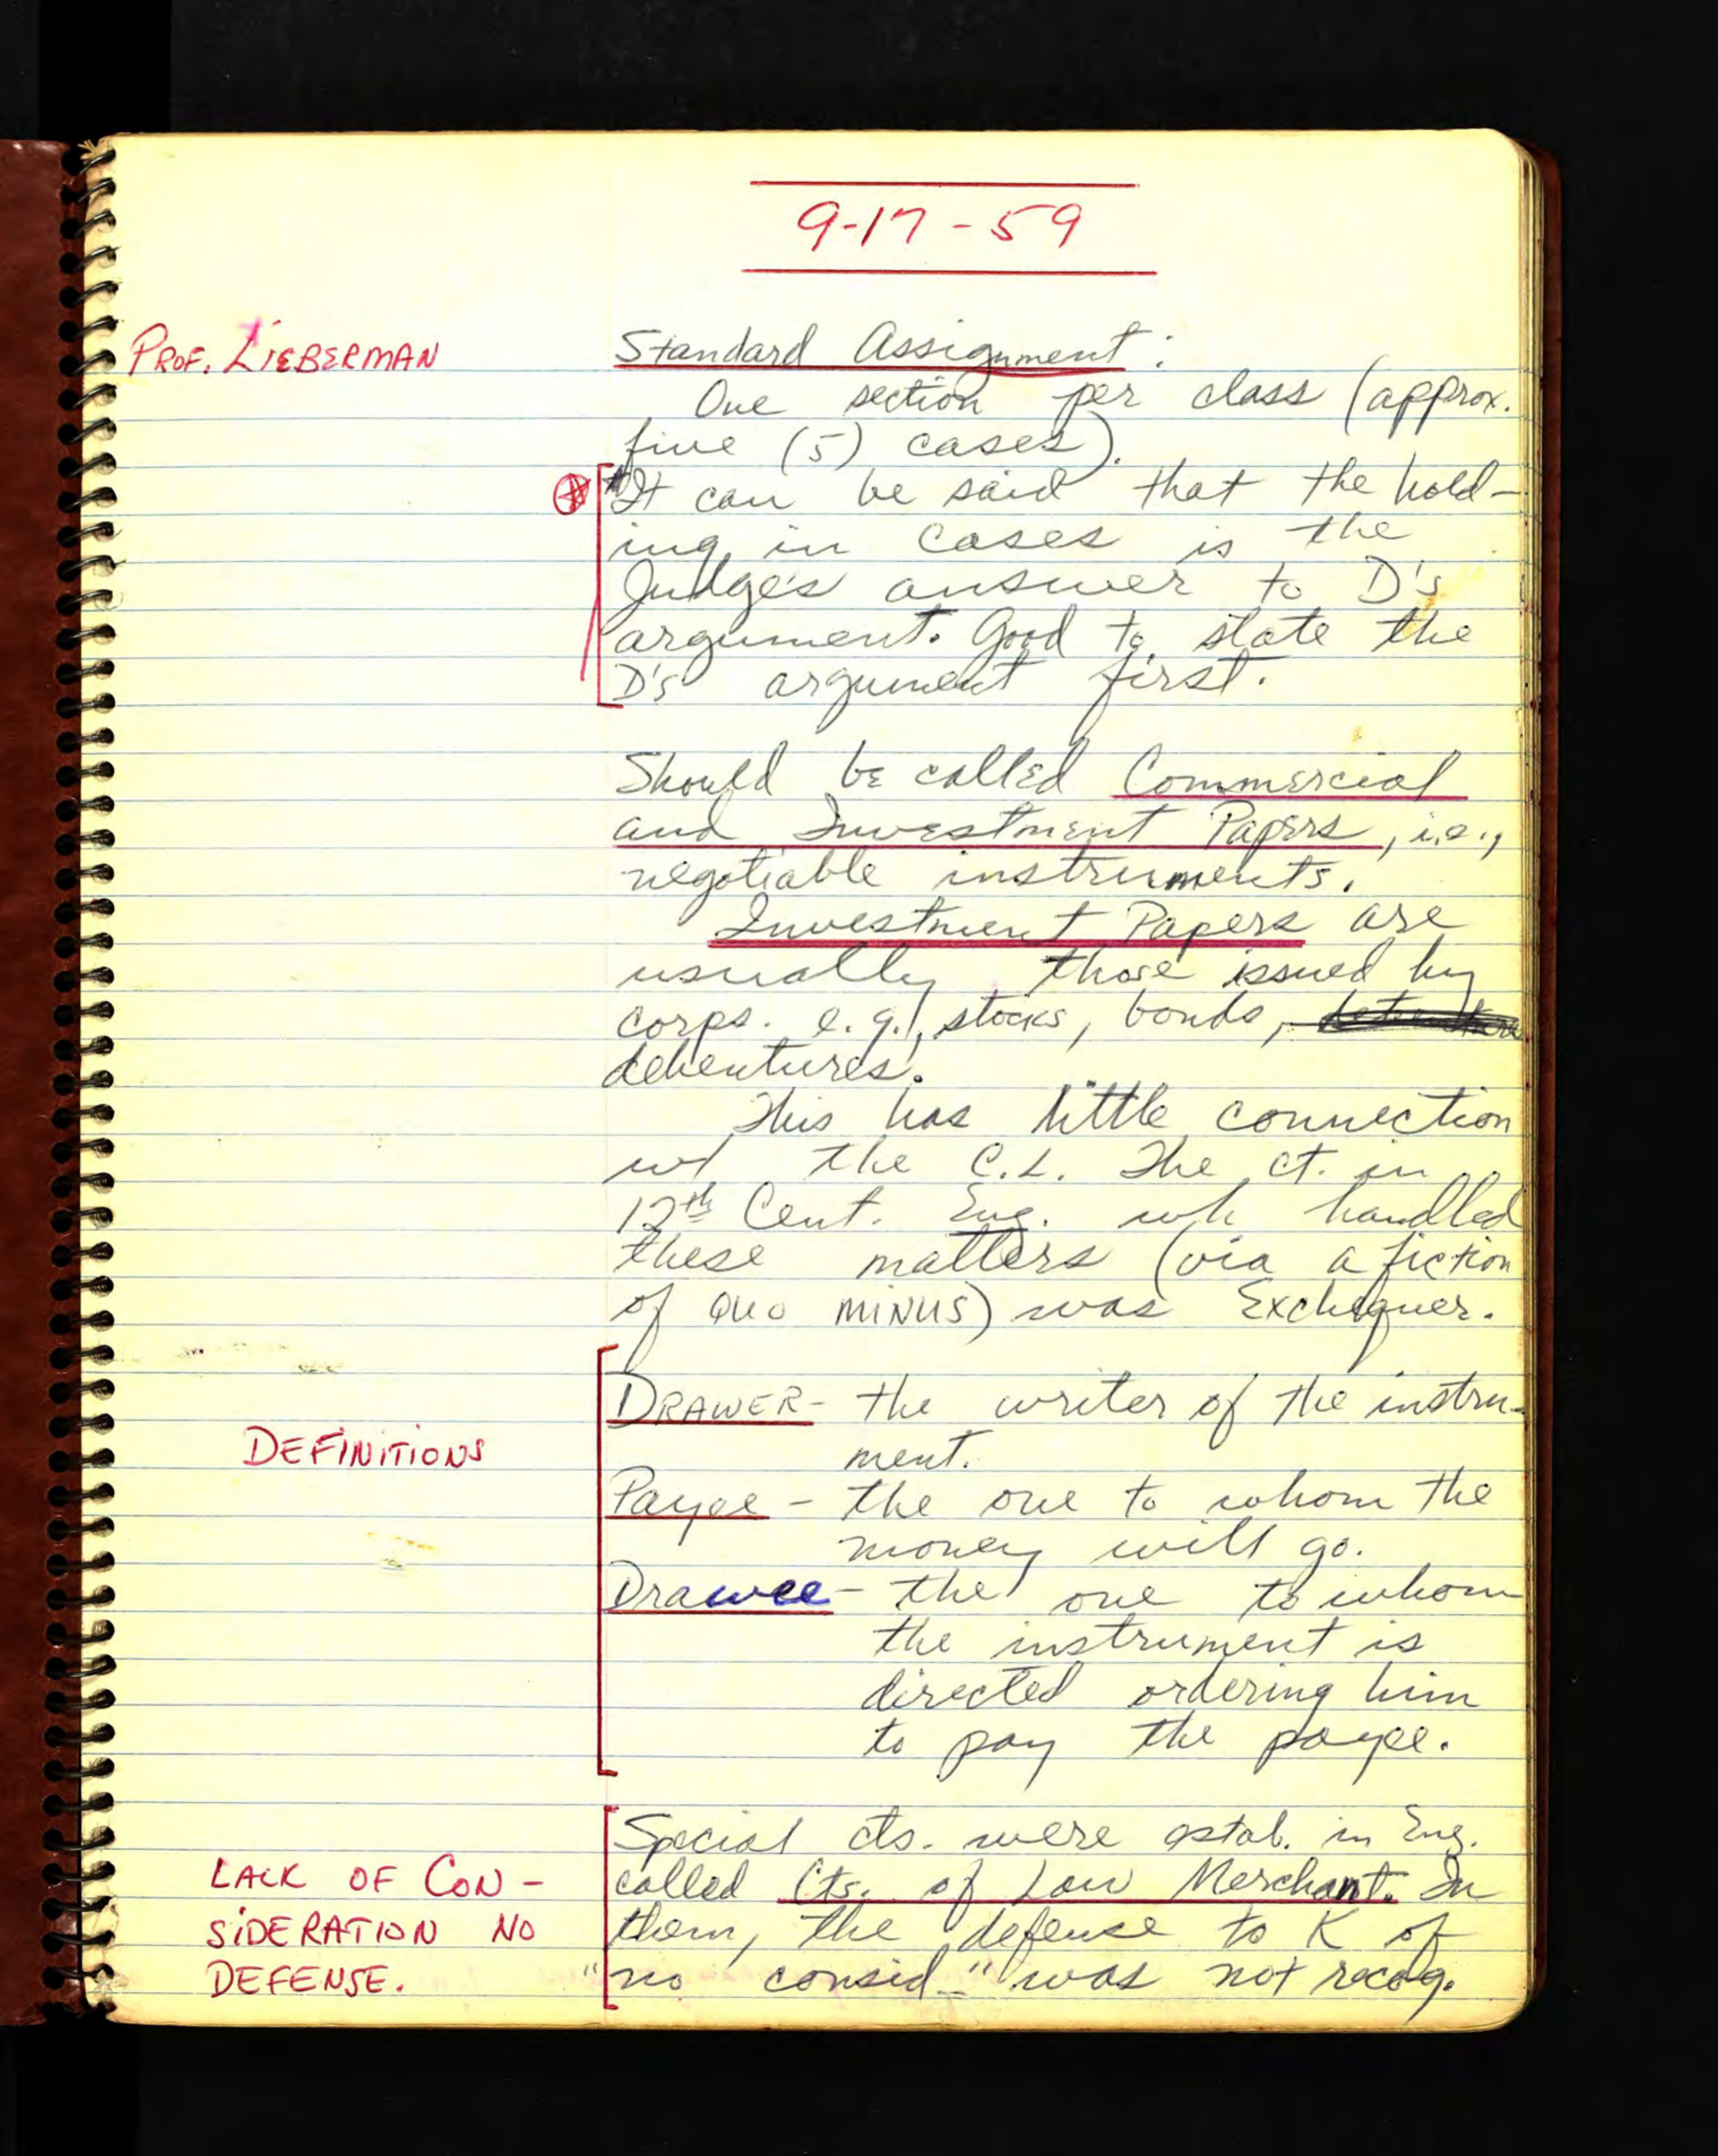 9-17-59
PROF. LIEBERMAN
Standard Assignment:
One section per class (approx.
five (5) cases).
*It can be said that the hold-
ing in cases is the
Judge's answer to D's
argument. Good to state the
D's argument first.
Should be called Commercial
and Investment Papers, i.e.,
negotiable instruments.
Investment Papers are
usually those issued by
corps. e.g., stocks, bonds,
debentures.
This has little connection
w/ the C.L. The ct. in
12th Cent. Eng. wh handled
these matters (via a fiction
of QUO MINUS) was Exchequer.
DEFINITIONS
DRAWER - the writer of the instru-
ment.
Payee - the one to whom the
money will go.
Drawee - the one to whom
the instrument is
directed ordering him
to pay the payee.
LACK OF CON-
SIDERATION NO
DEFENSE.
Special cts. were estab. in Eng.
called Cts. of Law Merchant. In
them, the defense to K of
"no consid." was not recog.